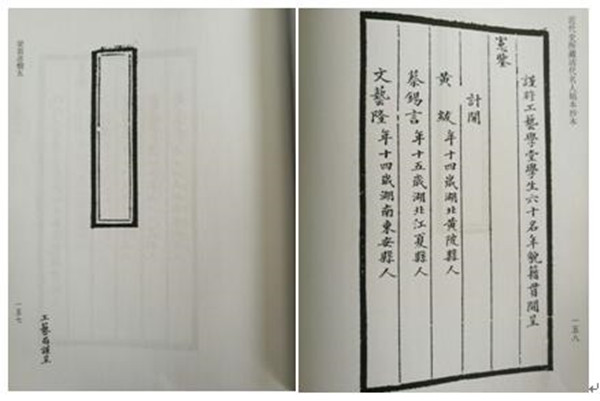 一五七
工藝局謹呈
近代史所藏清代名人稿本抄本
一五八
謹將工藝學堂學生六十名年貌籍貫開呈
憲鑒
計開
黃 紱 年十四歲湖北黃陂縣人
蔡錫言 年十五歲湖北江夏縣人
文藝隆 年十四歲湖南東安縣人